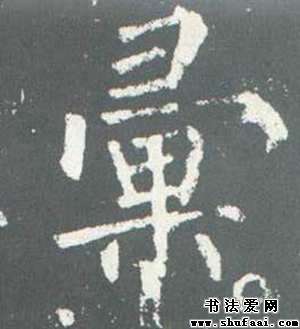 彙
书法爱网
www.shufaai.com